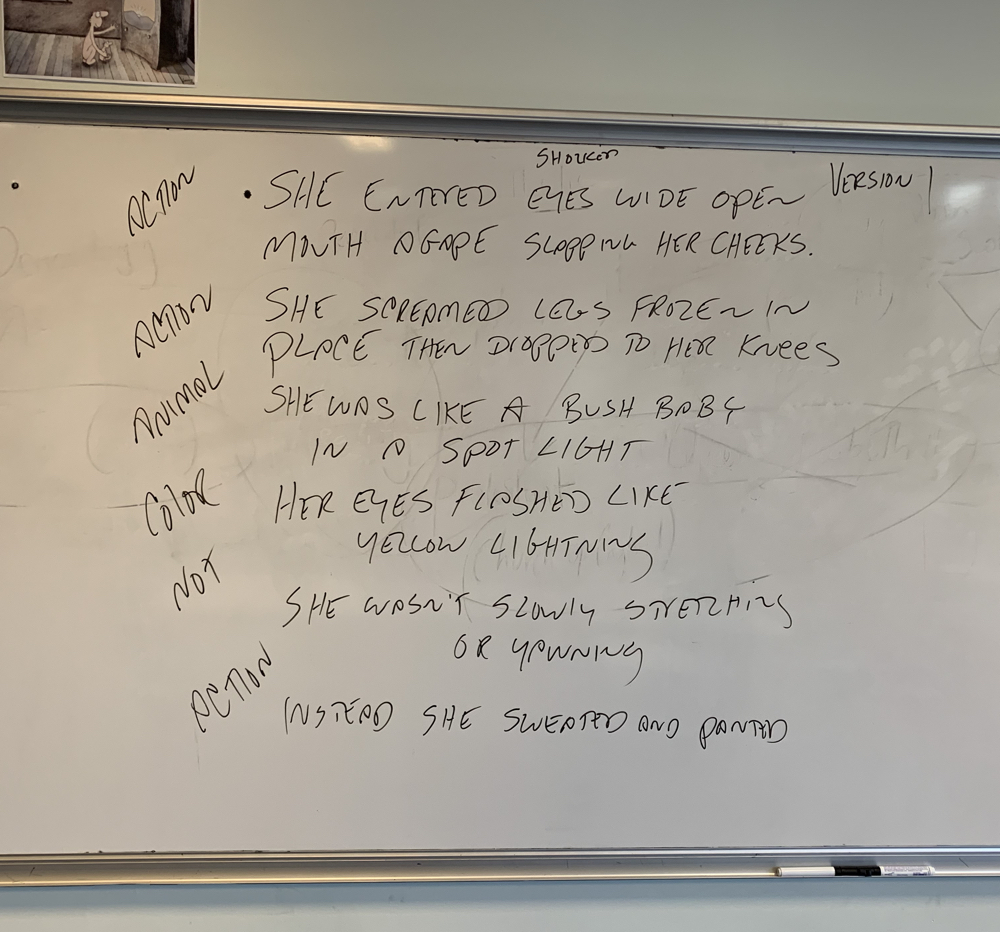 SHOCKED
ACTION • SHE ENTERED EYES WIDE OPEN VERSION 1
MOUTH AGAPE SLAPPING HER CHEEKS.
ACTION SHE SCREAMED LEGS FROZEN IN
PLACE THEN DROPPED TO HER KNEES
ANIMAL SHE WAS LIKE A BUSH BABY
IN A SPOT LIGHT
COLOR HER EYES FLASHED LIKE
YELLOW LIGHTNING
NOT SHE WASN'T SLOWLY STRETCHING
OR YAWNING
ACTION INSTEAD SHE SWEATED AND PANTED